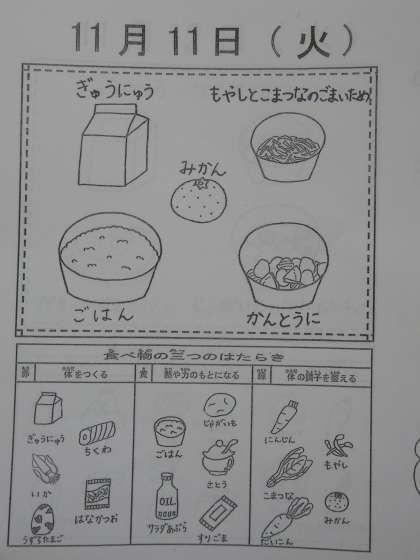 11月11日（火）
ぎゅうにゅう
もやしとこまつなのごまいため
みかん
ごはん
かんとうに
食べ物の三つのはたらき
赤 体をつくる
黄 熱や力のもとになる
緑 体の調子を整える
ぎゅうにゅう
ちくわ
いか
はなかつお
うずらたまご
じゃがいも
ごはん
さとう
OIL
サラダあぶら
すりごま
にんじん
もやし
こまつな
みかん
だいこん